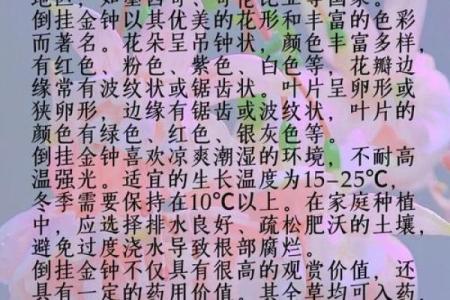 地区，如墨西哥、哥伦比亚等国家。
倒挂金钟以其优美的花形和丰富的色彩
而著名。花朵呈吊钟状，颜色丰富多样，
有红色、粉色、紫色、白色等，花瓣边
缘常有波纹状或锯齿状。叶片呈卵形或
狭卵形，边缘有锯齿或波纹状，叶片的
颜色有绿色、红色、银灰色等。
倒挂金钟喜欢凉爽潮湿的环境，不耐高
温强光。适宜的生长温度为15-25℃，
冬季需要保持在10℃以上。在家庭种植
中，应选择排水良好、疏松肥沃的土壤，
避免过度浇水导致根部腐烂。
倒挂金钟不仅具有很高的观赏价值，还
具有一定的药用价值。其全草均可入药